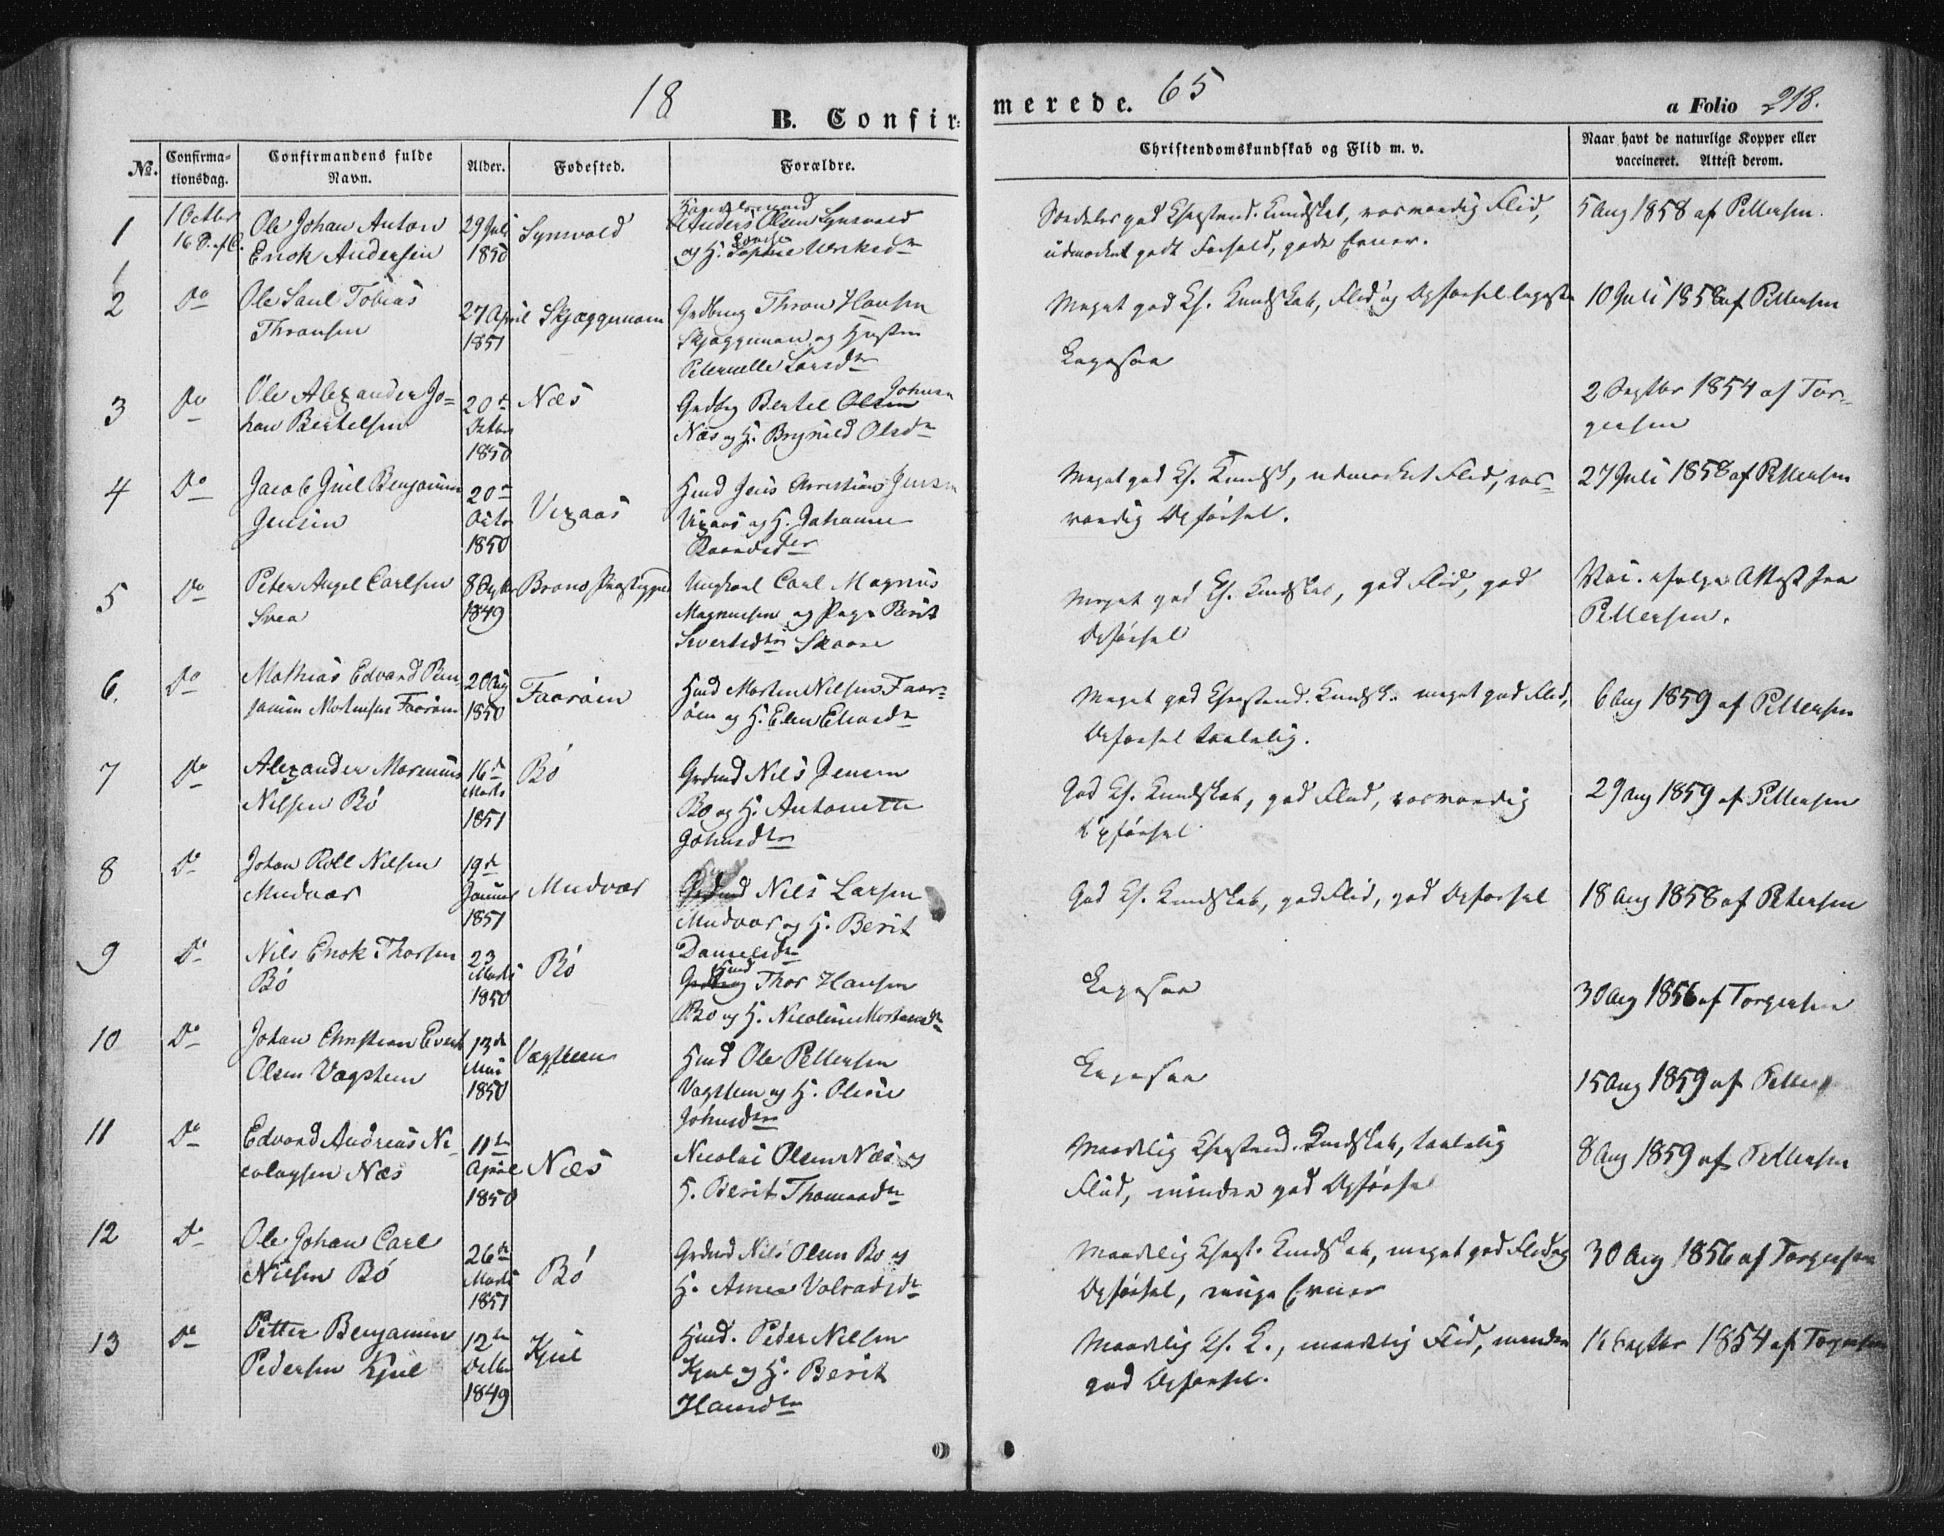 18
65
B. Confir-
merede.
a Folio 218.
No.
Confirma-
tionsdag.
Confirmandens fulde
Navn.
Alder.
Fødested.
Forældre.
Christendomskundskab og Flid m. v.
Naar havt de naturlige Kopper eller
vaccineret. Attest derom.
1
1 Octbr
16 S. e. f. T.
Ole Johan Anton
Enok Andersen
29 Juli
1850
Synvold
Anders Olsen Synvold
og H. Sophie
Særdeles god Christend. Kundskab, rosværdig Flid,
udmærket godt Forhold, gode Evner.
5 Aug 1858 af Pettersen.
2
Do
Ole Saul Tobias
Thronsen
27 April
1851
Skjæggenæsen
Grdbrug Thron Hansen
og Hustru
Peternelle Larsdtr
Meget god Ch. Kundskab, Flid og Opførsel ligesaa
10 Juli 1858 af Pettersen
3
Do
Ole Alexander Jo-
han Bertelsen
20de
Octbr
1850
Næs
Grdbrg Bertel Olsen Johnsen
Næs og H. Brynild Olsdtr
Ligesaa
2 Septbr 1854 af Tor-
gersen
4
Do
Jacob Juel Benjamin
Jensen
20de
Octbr
1850
Vixaas
Hmd Jens Christian Jensen
Vixaas og H. Johanne
Meget god Ch. Kundsk, udmærket Flid, ros-
værdig Opførsel.
27 Juli 1858 af Pettersen
5
Do
Peter Angel Carlsen
Svea
8 Septbr
1849
Brønø Præstegjeld
Ungkarl Carl Magnus
Magnusen og Pige Berit
Sivertsdtr Skaare
Meget god Ch. Kundskab, god Flid, god
Opførsel
Vac. ifølge Attest fra
Pettersen.
6.
Do
Mathias Edvard Ben-
jamin Mortensen Faarøen
20 Aug
1850
Faarøen
Hmd Morten Nilsen Faar-
øen og H. Elen
Meget god Christend. Kundsk. meget god Flid,
Opførsel taalelig.
6 Aug 1859 af Pettersen
7
Do
Alexander Marenius
Nilsen Bø
16de
Marts
1851
Bø
Grdmd Nils Jensen
Bø og H. Antonette
Johnsdtr
God Ch. Kundskab, god Flid, rosværdig
Opførsel
29 Aug 1859 af Pettersen
8
Do
Johan Roll Nilsen
Mudvær
19de
Januar
1851
Mudvær
Nils Larsen
Mudvær og H. Berit
Danielsdtr
God Ch. Kundskab, god Flid, god Opførsel
18 Aug 1858 af Petersen
9
Do
Nils Enok Thorsen
Bø
23
Marts
1850
Bø
Hmd Thor Hansen
Bø og H. Nicoline Mortensdtr
Ligesaa
30 Aug 1856 af Torgersen
10
Do
Johan Christian Evert
Olsen Vægsteen
13de
Mai
1850
Vægsteen
Hmd Ole Pettersen
Vægsteen og H. Olerie
Johnsdtr
Ligesaa
15 Aug 1859 af Petters
11
Do
Edvard Andreas Ni-
colaysen Næs
11te
April
1850
Næs
Nicolai Olsen Næs og
H. Berit Thomasdtr
Maadelig Christend. Kundskab, taalelig
Flid, mindre god Opførsel
8 Aug 1859 af Pettersen
12
Do
Ole Johan Carl
Nilsen Bø
26de
Marts
1851
Bø
Grdmd Nils Olsen Bø og
H. Anna Volradsdtr
Maadelig Christ. Kundskab, meget god Flid og
Opførsel, ringe Evner
30 Aug 1856 af Torgersen
13
Do
Petter Benjamin
Pedersen Kjul
12te
Octbr
1849
Kjul
Hmd. Peder Nilsen
Kjul og H. Berit
Hansdtr
Maadelig Ch. K., maadelig Flid, mindre
god Opførsel.
16 Septbr 1854 af Torgersen